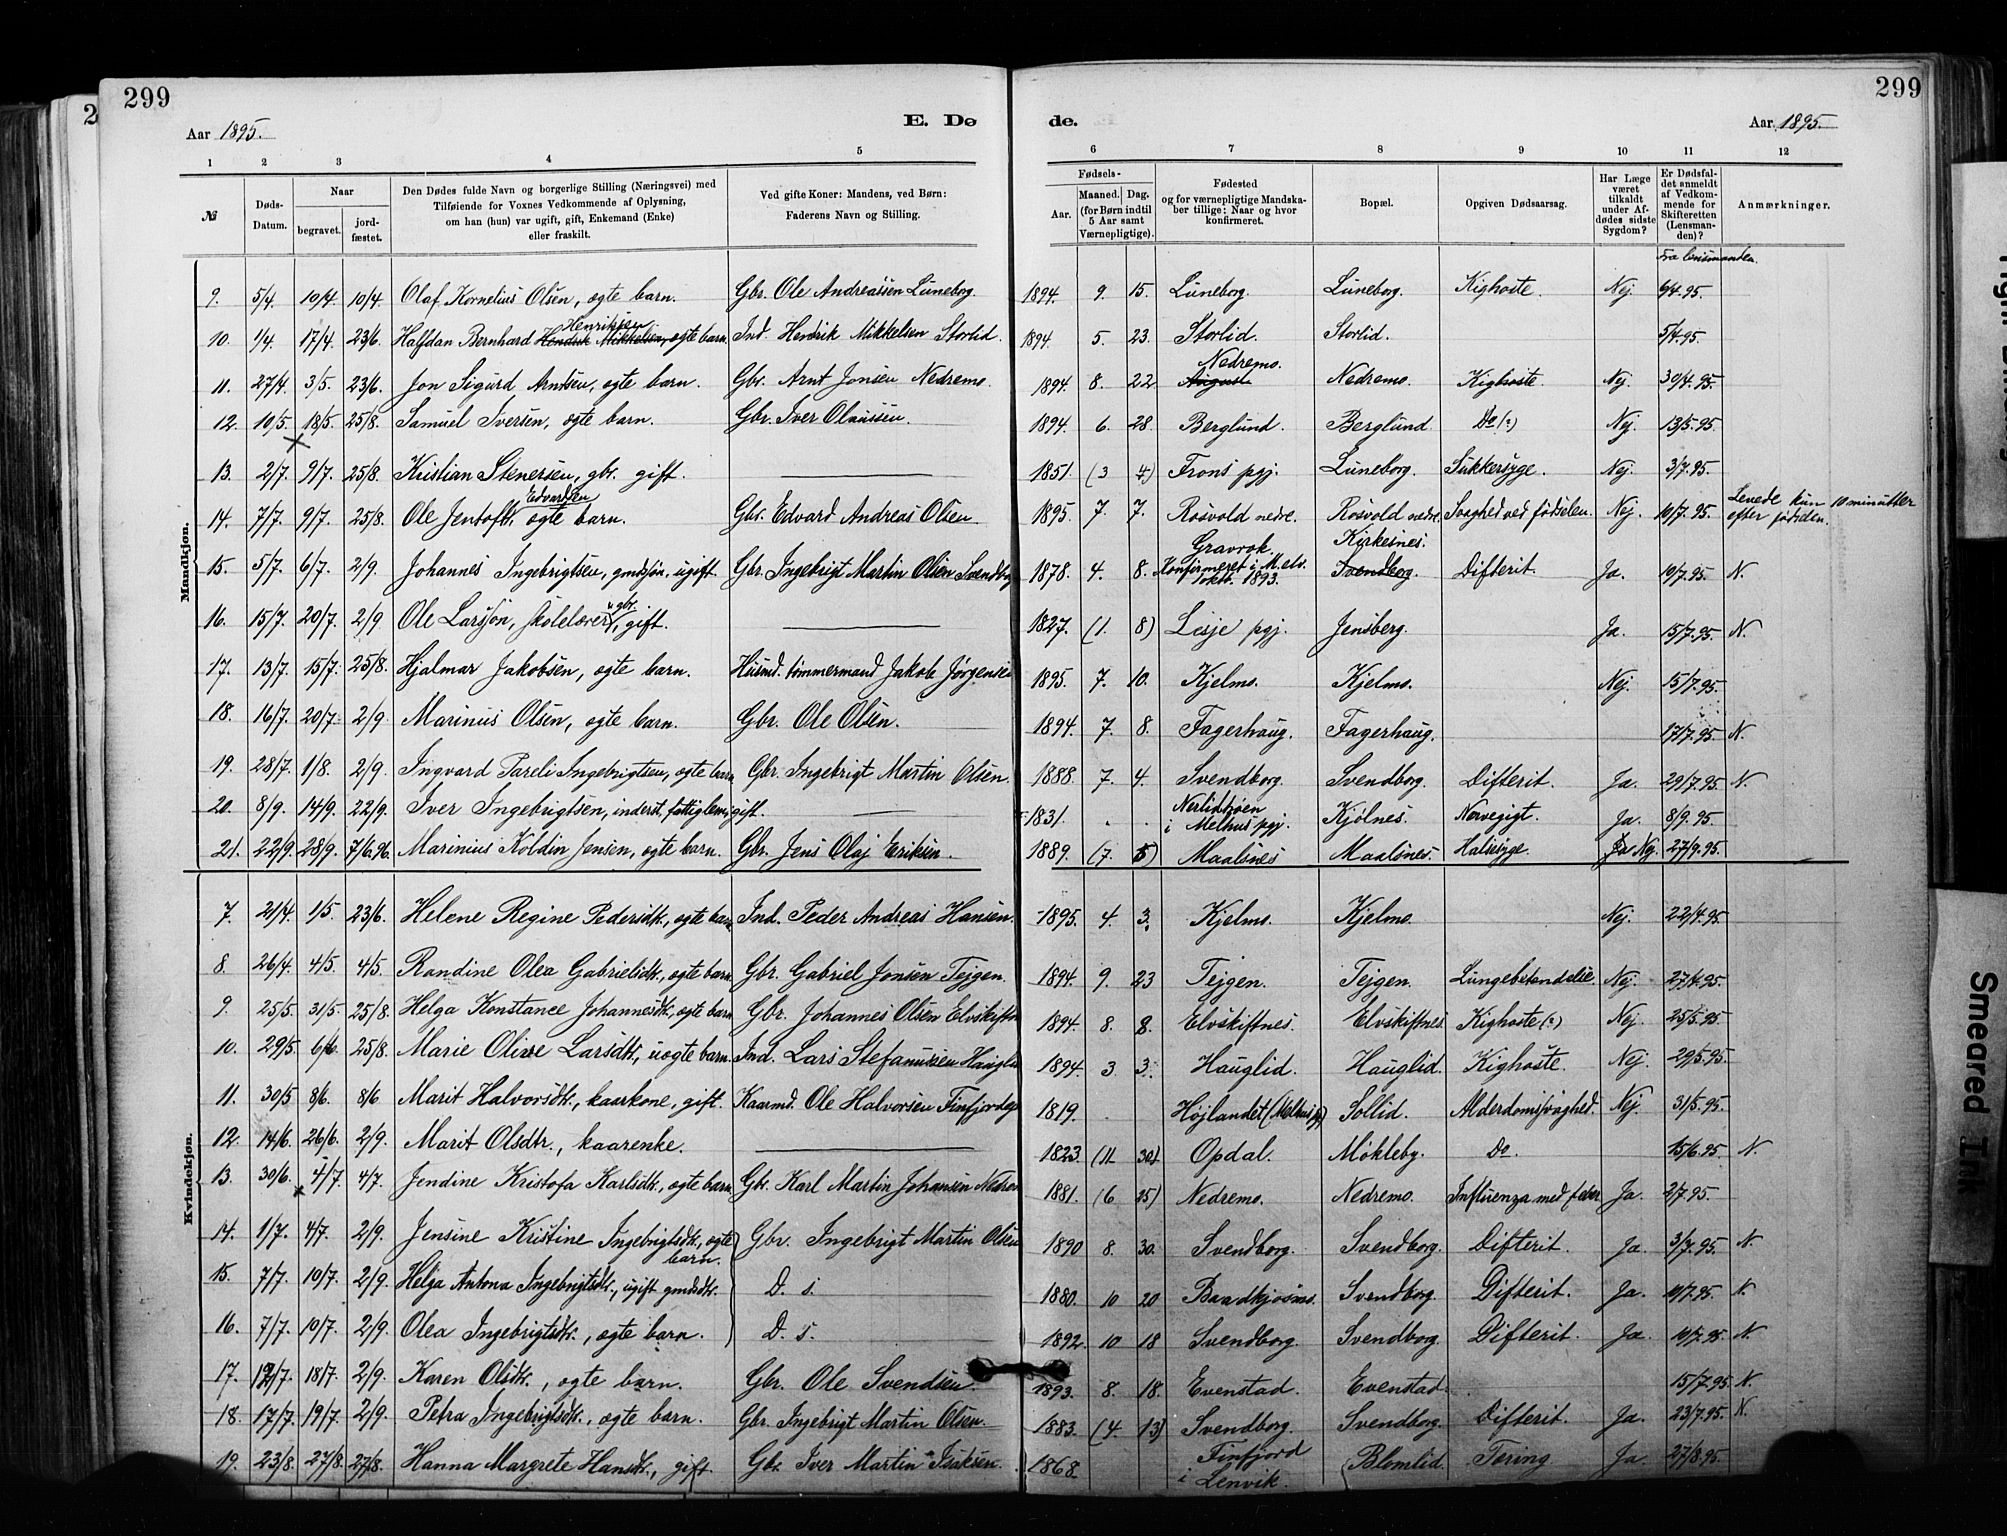 299
299
Aar 1895.
E. Dø
de.
Aar 1895.
1 2 3 4 5 6 7 8 9 10 11 12
№
Døds-Datum.
Naar
begravet.
jord-fæstet.
Den Dødes fulde Navn og borgerlige Stilling (Næringsvei) med
Tilføiende for Voxnes Vedkommende af Oplysning,
om han (hun) var ugift, gift, Enkemand (Enke)
eller fraskilt.
Ved gifte Koner: Mandens, ved Børn:
Faderens Navn og Stilling.
Fødsels-
Aar.
Maaned. Dag.
(for Børn indtil
5 Aar samt
Værnepligtige).
Fødested
og for værnepligtige Mandska-
ber tillige: Naar og hvor
konfirmeret.
Bopæl.
Opgiven Dødsaarsag.
Har Læge
været
tilkaldt
under Af-
dødes sidste
Sygdom?
Er Dødsfal-
det anmeldt
af Vedkom-
mende for
Skifteretten
(Lensman-
den)?
Anmærkninger.
Fra lensmanden.
Mandkjøn.
9. 5/4. 10/4. 10/4. Olaf Kornelius Olsen, ægte barn. Gbr. Ole Andreassen Luneborg. 1894. 9. 15. Luneborg. Luneborg. Kighoste. Nej. 6/4.95.
10. 1/4. 17/4. 23/6. Halfdan Bernhard Hendrik Mikkelsen, Henriksen ægte barn. Ind. Hendrik Mikkelsen Storlid. 1894. 5. 23. Storlid. Storlid. 5/4.95
11. 27/4. 3/5. 23/6. Jon Sigurd Arntsen, ægte barn. Gbr. Arnt Jonsen Nedremo. 1894. 8. 22 August Nedremo. Nedremo. Kighoste. Nej. 30/4.95.
12. 10/5. 18/5. 25/8. Samuel Iversen, ægte barn. Gbr. Iver Olaussen. 1894. 6. 28. Berglund. Berglund. Do (?) Nej. 13/5.95.
13. 2/7. 9/7. 25/8. Kristian Stenersen, gbr. gift. 1851. (3 4) Frons pgj. Luneborg. Sukkersyge. Nej. 3/7.95.
14. 7/7. 9/7. 25/8. Ole Jentoft Edvardsen, ægte barn. Gbr. Edvard Andreas Olsen. 1895. 7. 7. Rosvold nedre. Rosvold nedre. Svaghed ved fødselen. Nej. 10/7.95. Levede kun 10 minutter efter fødselen.
15. 5/7. 6/7. 2/9. Johannes Ingebrigtsen, gmdsøn, ugift. Gbr. Ingebrigt Martin Olsen Svendborg 1878. 4. 8. Gravrok. Konfirmeret i M.elv. 1893. Kirkesnes. Svendborg. Difterit. Ja. 10/7.95. N.
16. 15/7. 20/7. 2/9. Ole Larsson, skolelærer u gbr., gift. 1827. (1. 8) Lesje pgj. Jensberg. Ja. 15/7.95. N.
17. 13/7. 15/7. 25/8. Hjalmar Jakobsen, ægte barn. Husmd. tømmermand Jakob Jørgensen 1895. 7. 10. Kjelmo. Kjelmo. Nej. 15/7.95.
18. 16/7. 20/7. 2/9. Marinus Olsen, ægte barn. Gbr. Ole Olsen. 1894. 7. 8. Fagerhaug. Fagerhaug. 17/7.95. N.
19. 28/7. 1/8. 2/9. Ingvard Pareli Ingebrigtsen, ægte barn. Gbr. Ingebrigt Martin Olsen. 1888. 7. 4. Svendborg. Svendborg. Difterit. Ja. 29/7.95. N.
20. 8/9. 14/9. 22/9. Iver Ingebrigtsen, inderst, fattiglem, gift. 1831. i Melhus pgj. Kjølnes. Nervegigt. Ja. 8/9.95.
21. 22/9. 28/9. 7/6.96. Marinius Koldin Jensen, ægte barn. Gbr. Jens Olaj Eriksen. 1889. (7. 5) Maalsnes Maalsnes. Halssyge. Ja Nej. 27/9.95.
Kvindekjøn.
7. 21/4. 1/5. 23/6. Helene Regine Pedersdtr., ægte barn. Ind. Peder Andreas Hansen. 1895. 4. 3. Kjelmo. Kjelmo. Nej. 22/4.95
8. 26/4. 4/5. 4/5. Randine Olea Gabrielsdtr., ægte barn Gbr. Gabriel Jonsen Tejgen. 1894. 9. 23 Tejgen. Tejgen. Lungebetændelse. Nej. 27/4.95.
9. 25/5. 31/5. 25/8. Helga Konstance Johannesdtr., ægte barn Gbr. Johannes Olsen Elvskiftn. 1894. 8. 8. Elvskiftnes. Elvskiftnes. Kighoste (?) Nej. 25/5.95.
10. 29/5. 6/6. 25/8. Marie Oline Larsdtr., uægte barn. Ind. Lars Stefanussen Hauglid 1894. 3 3. Hauglid. Hauglid. Kighoste. Nej. 29/5.95.
11. 30/5 8/6. 8/6 Marit Halvorsdtr., kaarkone, gift. Kaarmd. Ole Halvorsen Finfjordeg 1819. Højlandet (Melhus pgj) Sollid. Alderdomssvaghed. Nej. 31/5.95.
12. 14/6. 26/6. 2/9. Marit Olsdtr., kaarenke. 1823. (11 30) Opdal. Møkleby. Do. 15/6.95 N.
13. 30/6. 4/7. 4/7. Jendine Kristofa Karlsdtr., ægte barn. Gbr. Karl Martin Johansen Nedrem 1881. (6 25) Nedremo. Nedremo. Influenza med feber Ja. 2/7.95.
14. 1/7. 4/7. 2/9. Jensine Kristine Ingebrigtsdtr., ægte barn. Gbr. Ingebrigt Martin Olsen 1890 8. 30. Svendborg. Svendborg. Difterit. Ja. 3/7.95. N.
15. 7/7. 10/7. 2/9. Helga Antona Ingebrigtsdtr., ugift gmdsdtr. D. s. 1880. 10 20 Baadkjosnes. Svendborg. Difterit. Ja. 10/7.95. N.
16. 7/7. 10/7. 2/9. Olea Ingebrigtsdtr., ægte barn. D. s. 1892. 10 18 Svendborg. Svendborg. Difterit. Ja. 10/7.95. N.
17. 12/7. 18/7. 2/9. Karen Olsdtr., ægte barn. Gbr. Ole Svendsen. 1893. 8. 18. Evenstad. Evenstad. 15/7.95. N.
18. 17/7. 19/7. 2/9. Petra Ingebrigtsdtr., ægte barn. Gbr. Ingebrigt Martin Olsen. 1883. (4. 13) Svendborg. Svendborg. Difterit. Ja. 23/7.95. N.
19. 23/8. 27/8. 27/8. Hanna Margrete Hansdtr., gift. Gbr. Iver Martin Isaksen. 1868. Finfjord i Lenvik. Blomlid. Tæring Ja. 27/8.95.
Smeared Ink